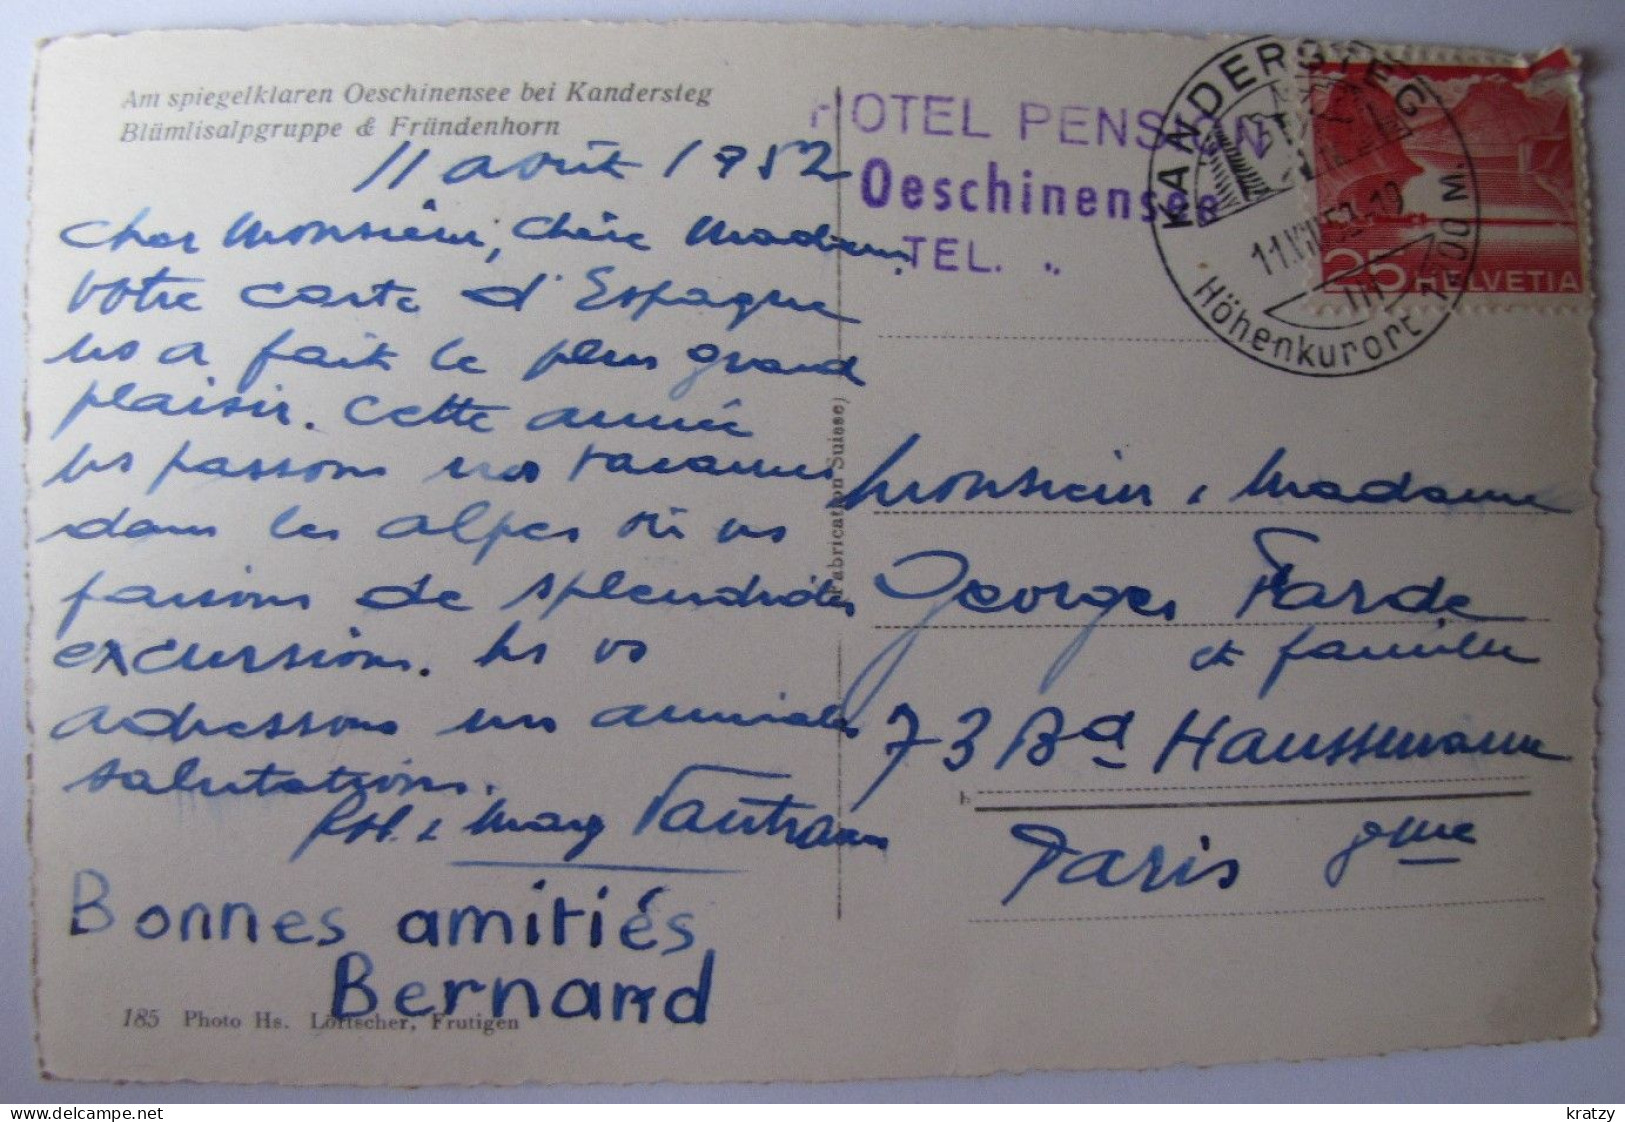 Am spiegelklaren Oeschinensee bei Kandersteg
Blümlisalpgruppe & Fründenhorn
11 août 1952
Cher Monsieur, Chère Madame,
Votre carte d'Espagne
ns a fait le plus grand
plaisir. Cette année
ns passons nos vacances
dans les alpes où ns
faisons de splendides
excursions. Ns vs
adressons nos amicales
salutations.
Rob. & Mary Vautravers
Bonnes amitiés
Bernard
185 Photo Hs. Lörtscher, Frutigen
(Fabrication Suisse)
HOTEL PENSION
Oeschinensee
TEL. "
KANDERSTEG
11.VIII.52-19
Höhenkurort 1200 M.
25 HELVETIA
Monsieur & Madame
Georges Farde
et famille
73 Bd Haussmann
Paris 9me
kratzy
delcampe.net